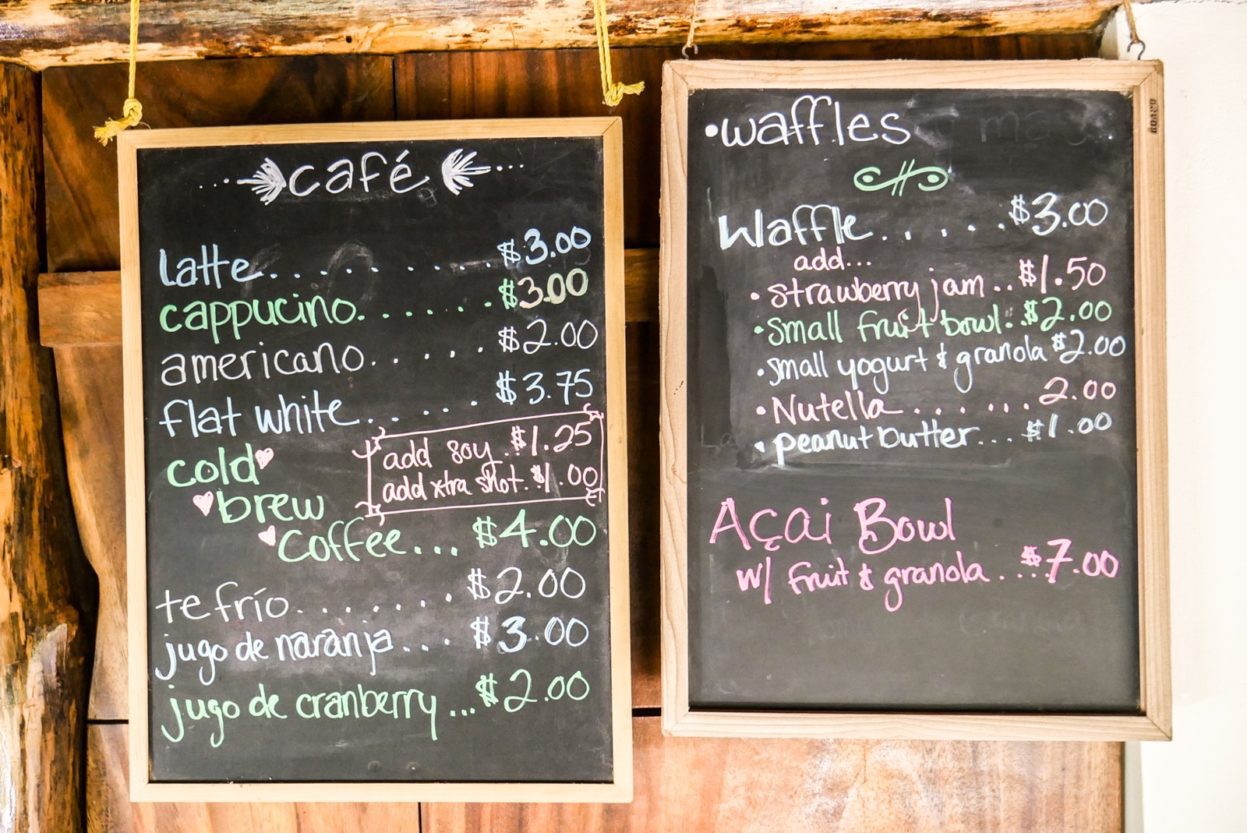 ...café...
latte.......... $3.00
cappucino...... $3.00
americano...... $2.00
flat white...... $3.75
add soy.. $1.25
add xtra shot. $1.00
cold
brew
coffee... $4.00
te frío....... $2.00
jugo de naranja... $3.00
jugo de cranberry ...$2.00
•waffles
Waffle...... $3.00
add...
• strawberry jam..$1.50
• small fruit bowl..$2.00
• small yogurt & granola $2.00
• Nutella...... 2.00
• peanut butter... $1.00
Açai Bowl
w/ fruit & granola....$7.00